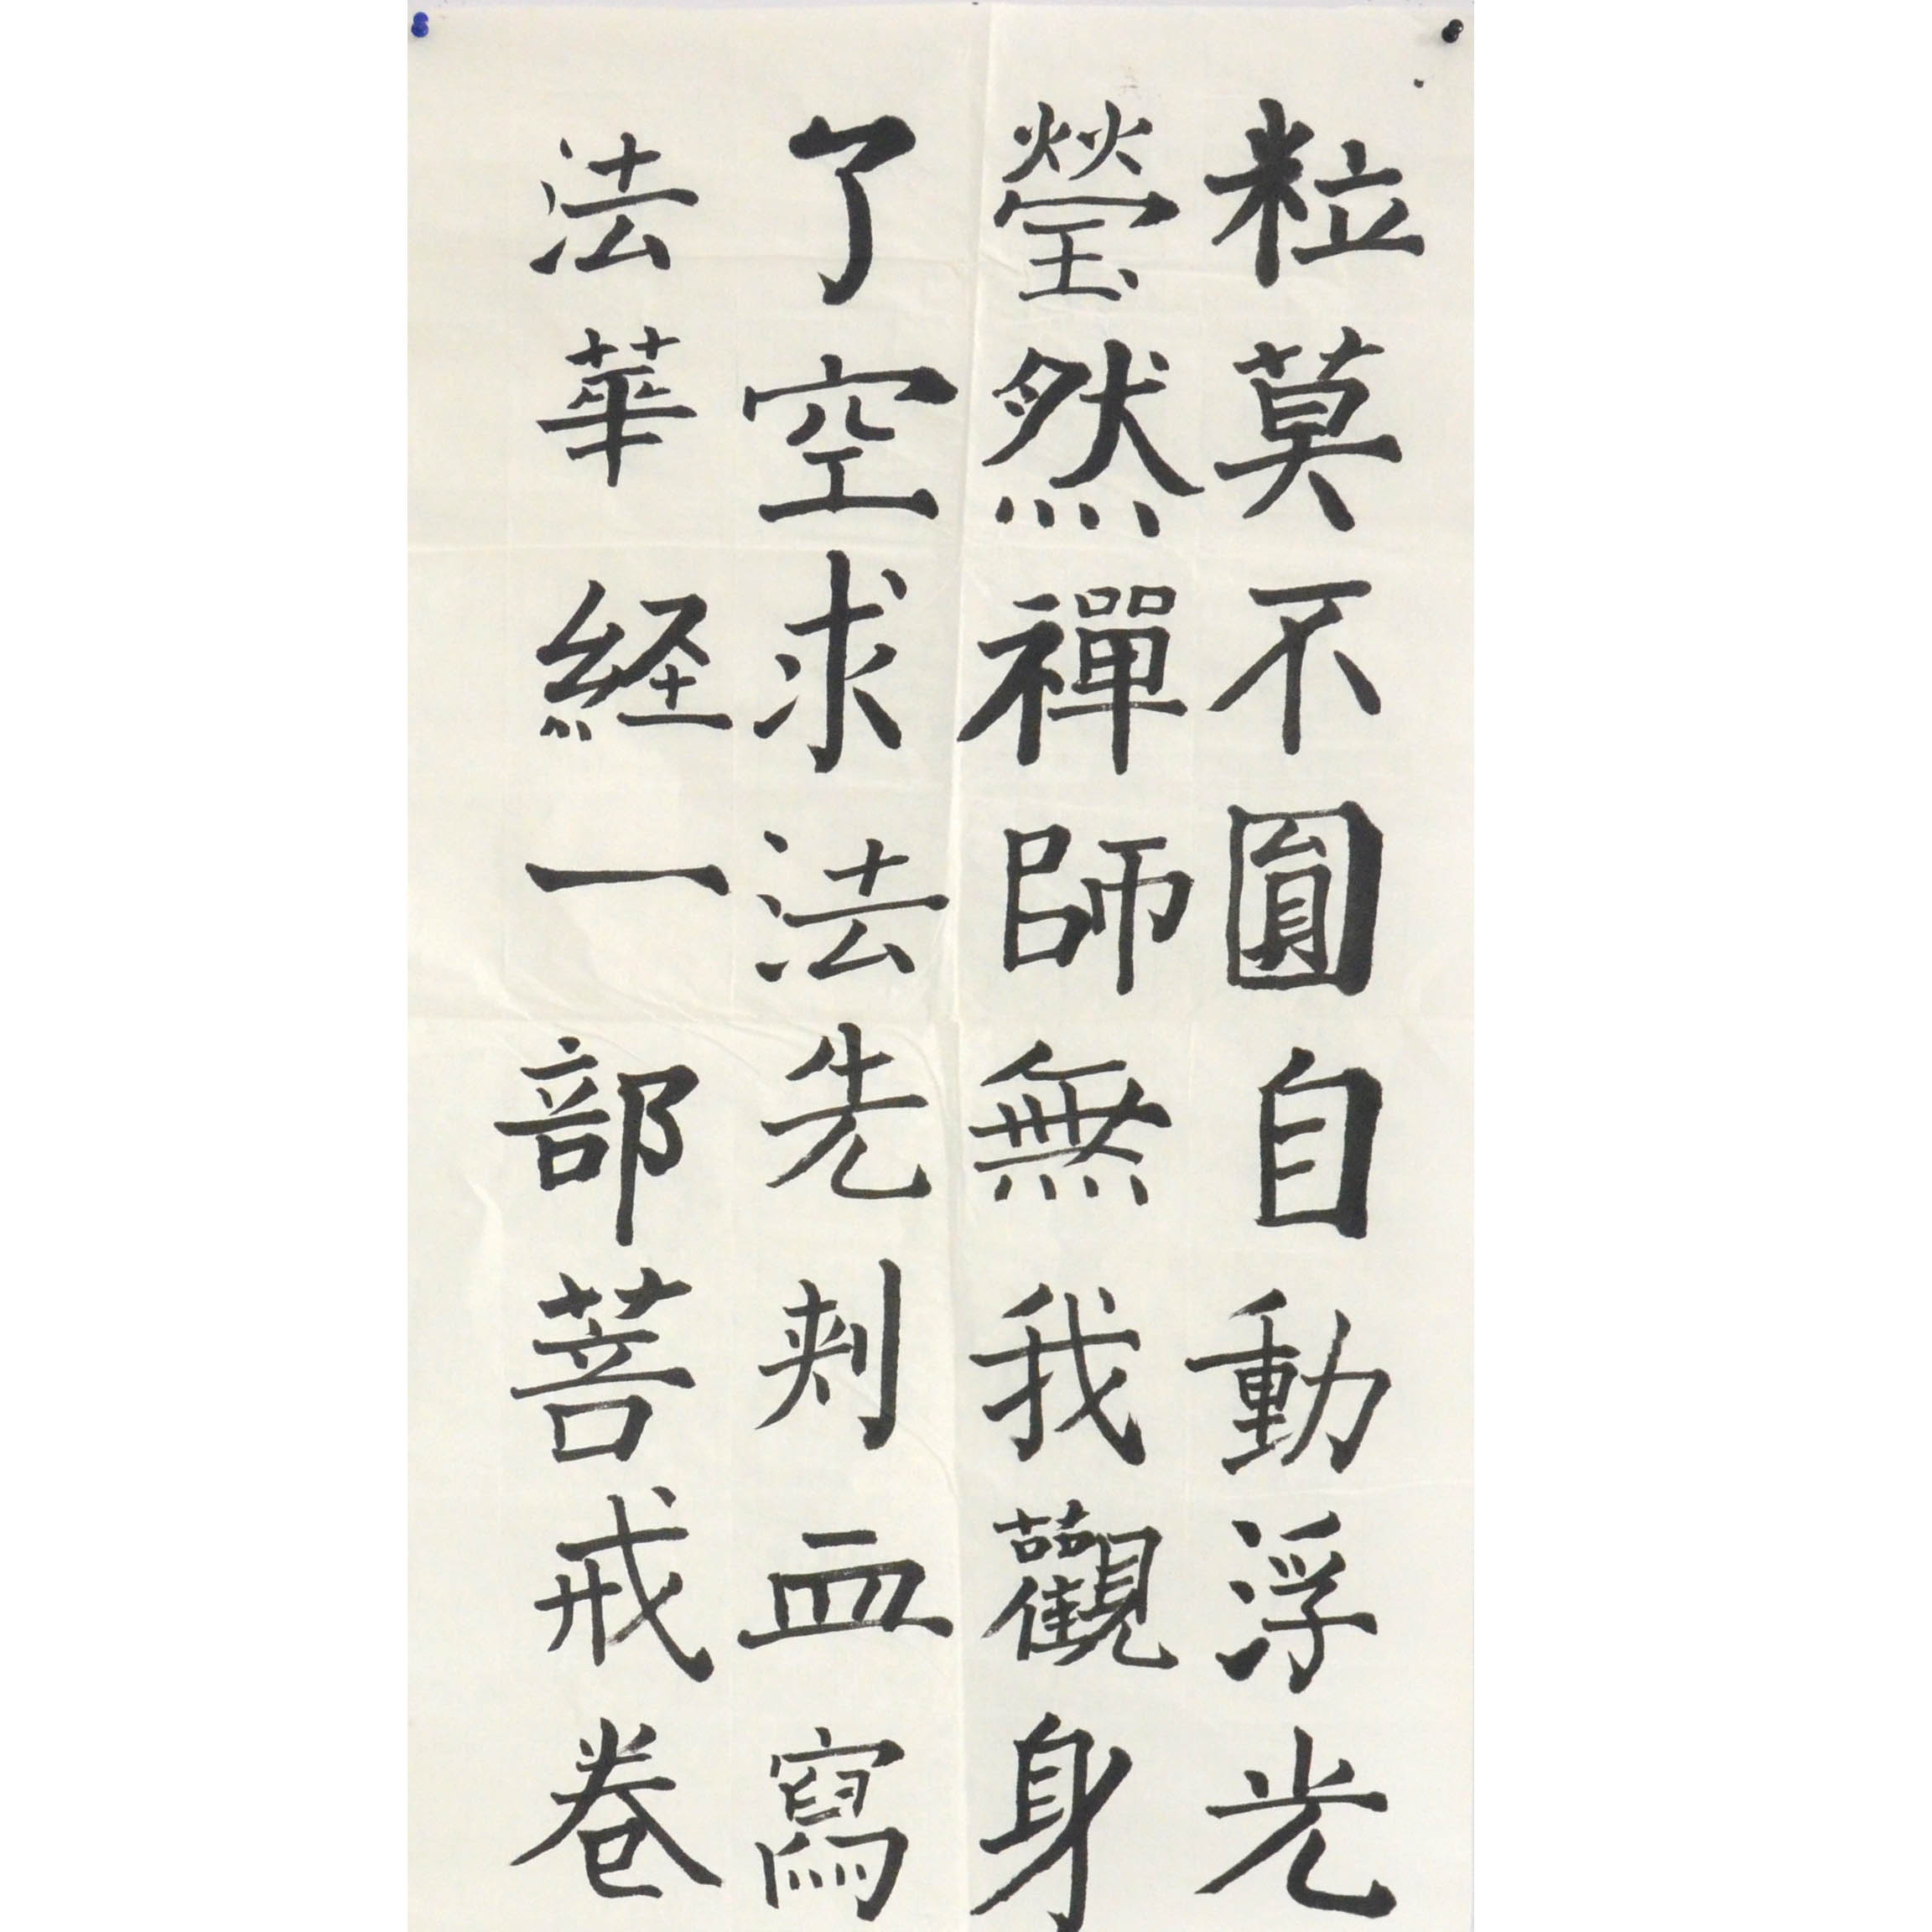 粒莫不圓自動浮光
瑩然禪師無我觀身
了空求法先刺血寫
法華経一部菩戒卷